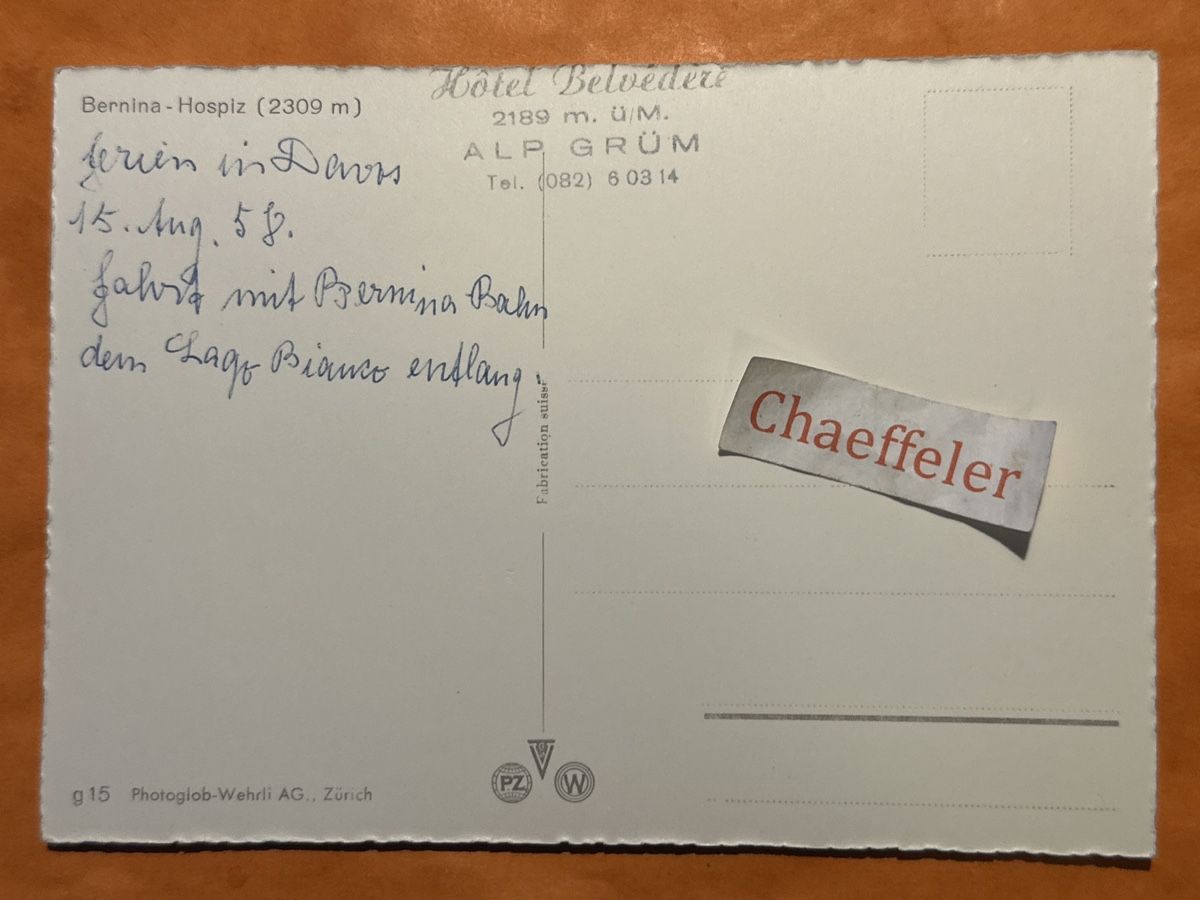 Hôtel Belvédère
2189 m. ü/M.
ALP GRÜM
Tel. (082) 6 03 14
Bernina-Hospiz (2309 m)
ferien in Davos
15. Aug. 58.
fahrt mit Bernina Bahn
dem Lago Bianco entlang.
Fabrication suisse
Chaeffeler
PZ
W
g 15 Photoglob-Wehrli AG., Zürich